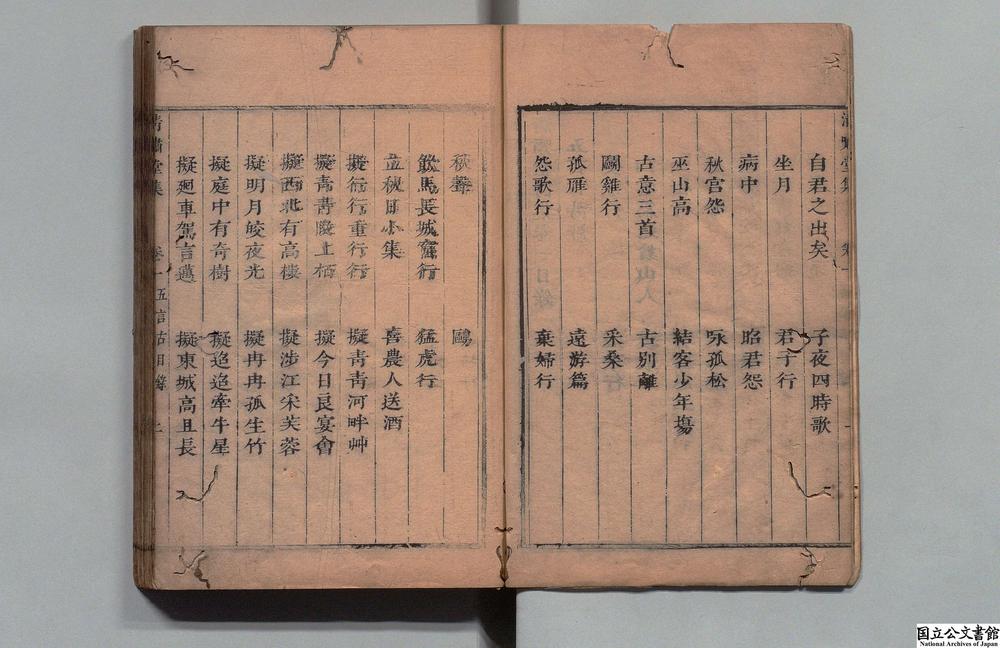 自君之出矣　子夜四時歌
坐月　君子行
病中　昭君怨
秋宮怨　咏孤松
巫山高　結客少年塲
古意三首　古別離
鬬雞行　采桑
孤雁　遠游篇
怨歌行　棄婦行
秋
飲馬長城窟行　猛虎行
立秋日小集　喜農人送酒
擬行行重行行　擬青青河畔艸
擬青青陵上栢　擬今日良宴會
擬西北有高樓　擬涉江采芙蓉
擬明月皎夜光　擬冉冉孤生竹
擬庭中有奇樹　擬迢迢牽牛星
擬廻車駕言邁　擬東城高且長
卷一
國立公文書館
National Archives of Japan